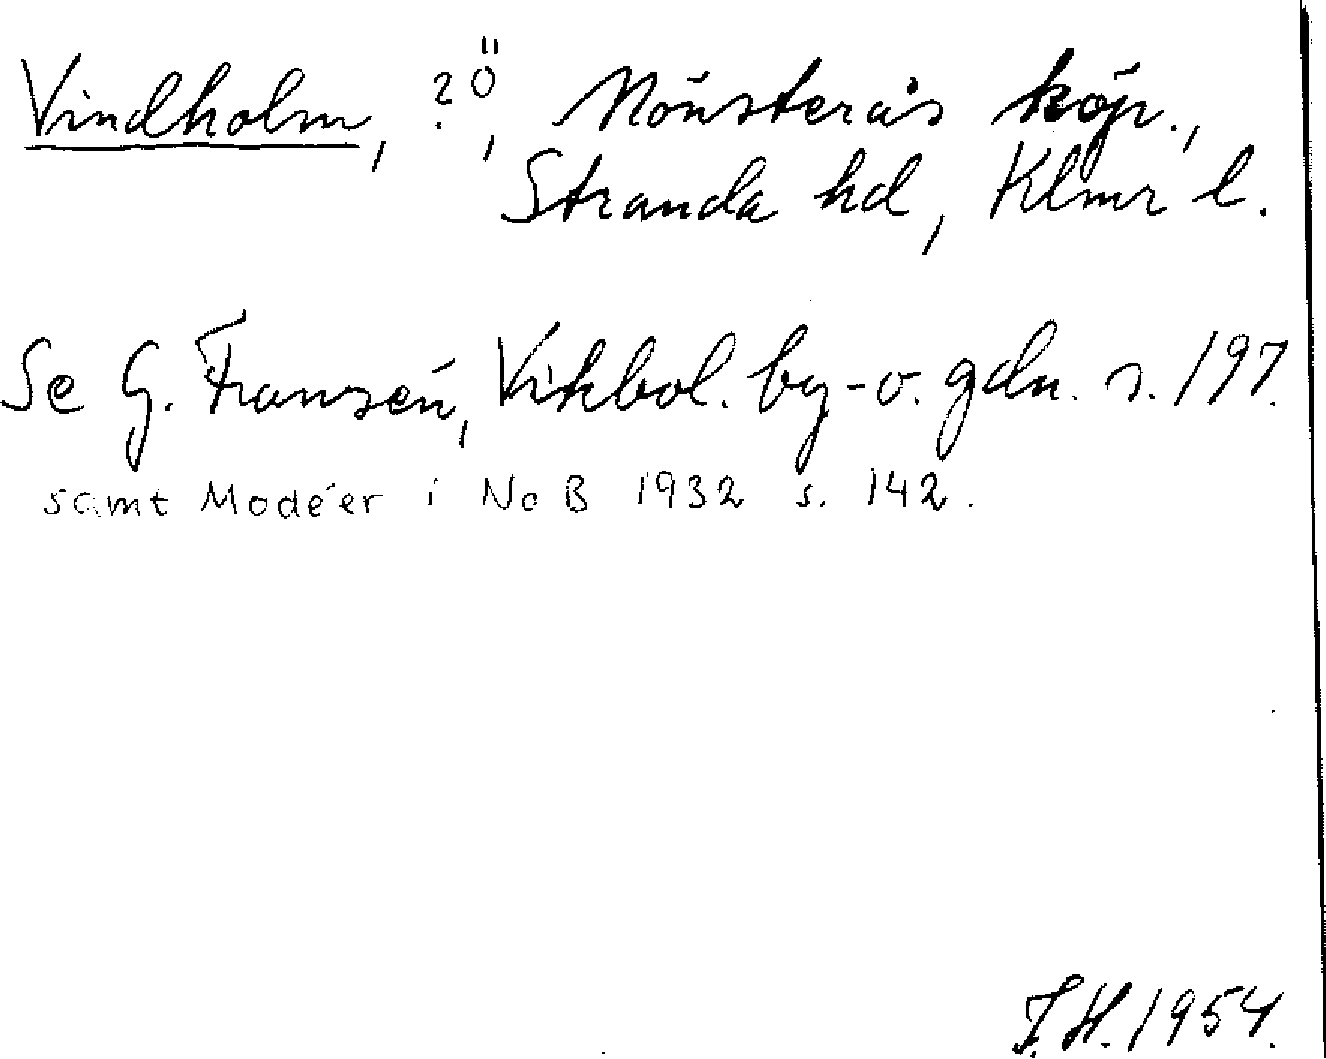 Vindholm, ? Ö, Mönsterås köp.,
Stranda hd, Klmr l.
Se G. Franzén, Vikbol. by- o. gdn. s. 197.
samt Modéer i NoB 1932 s. 142.
J.H. 1954.